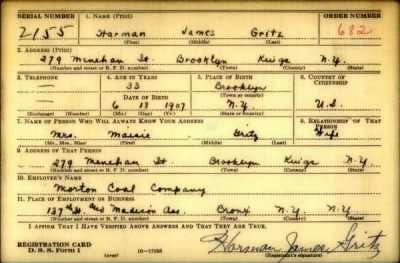 SERIAL NUMBER 1. NAME (Print) ORDER NUMBER
2155 Harman James Gritz 682
(First) (Middle) (Last)
2. ADDRESS (Print)
279 Menahan St. Brooklyn Kings N.Y.
(Number and street or R. F. D. number) (Town) (County) (State)
3. TELEPHONE 4. AGE IN YEARS 5. PLACE OF BIRTH 6. COUNTRY OF CITIZENSHIP
— 33 Brooklyn
DATE OF BIRTH (Town or county)
— 6 18 1907 N.Y. U.S.
(Mo.) (Day) (Yr.) (State or country)
7. NAME OF PERSON WHO WILL ALWAYS KNOW YOUR ADDRESS 8. RELATIONSHIP OF THAT PERSON
Mrs. Maisie Gritz Wife
(Mr., Mrs., Miss) (First) (Middle) (Last)
9. ADDRESS OF THAT PERSON
279 Menahan St. Brooklyn Kings N.Y.
(Number and street or R. F. D. number) (Town) (County) (State)
10. EMPLOYER'S NAME
Morton Coal Company
11. PLACE OF EMPLOYMENT OR BUSINESS
137th St. and Madison Ave. Bronx N.Y. N.Y.
(Number and street or R. F. D. number) (Town) (County) (State)
I AFFIRM THAT I HAVE VERIFIED ABOVE ANSWERS AND THAT THEY ARE TRUE.
REGISTRATION CARD
D. S. S. Form 1 (over) 16—17105 Harman James Gritz
(Registrant's signature)